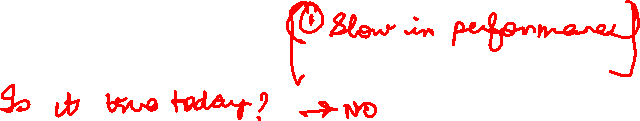 ① Slow in performance
Is it true today? → NO